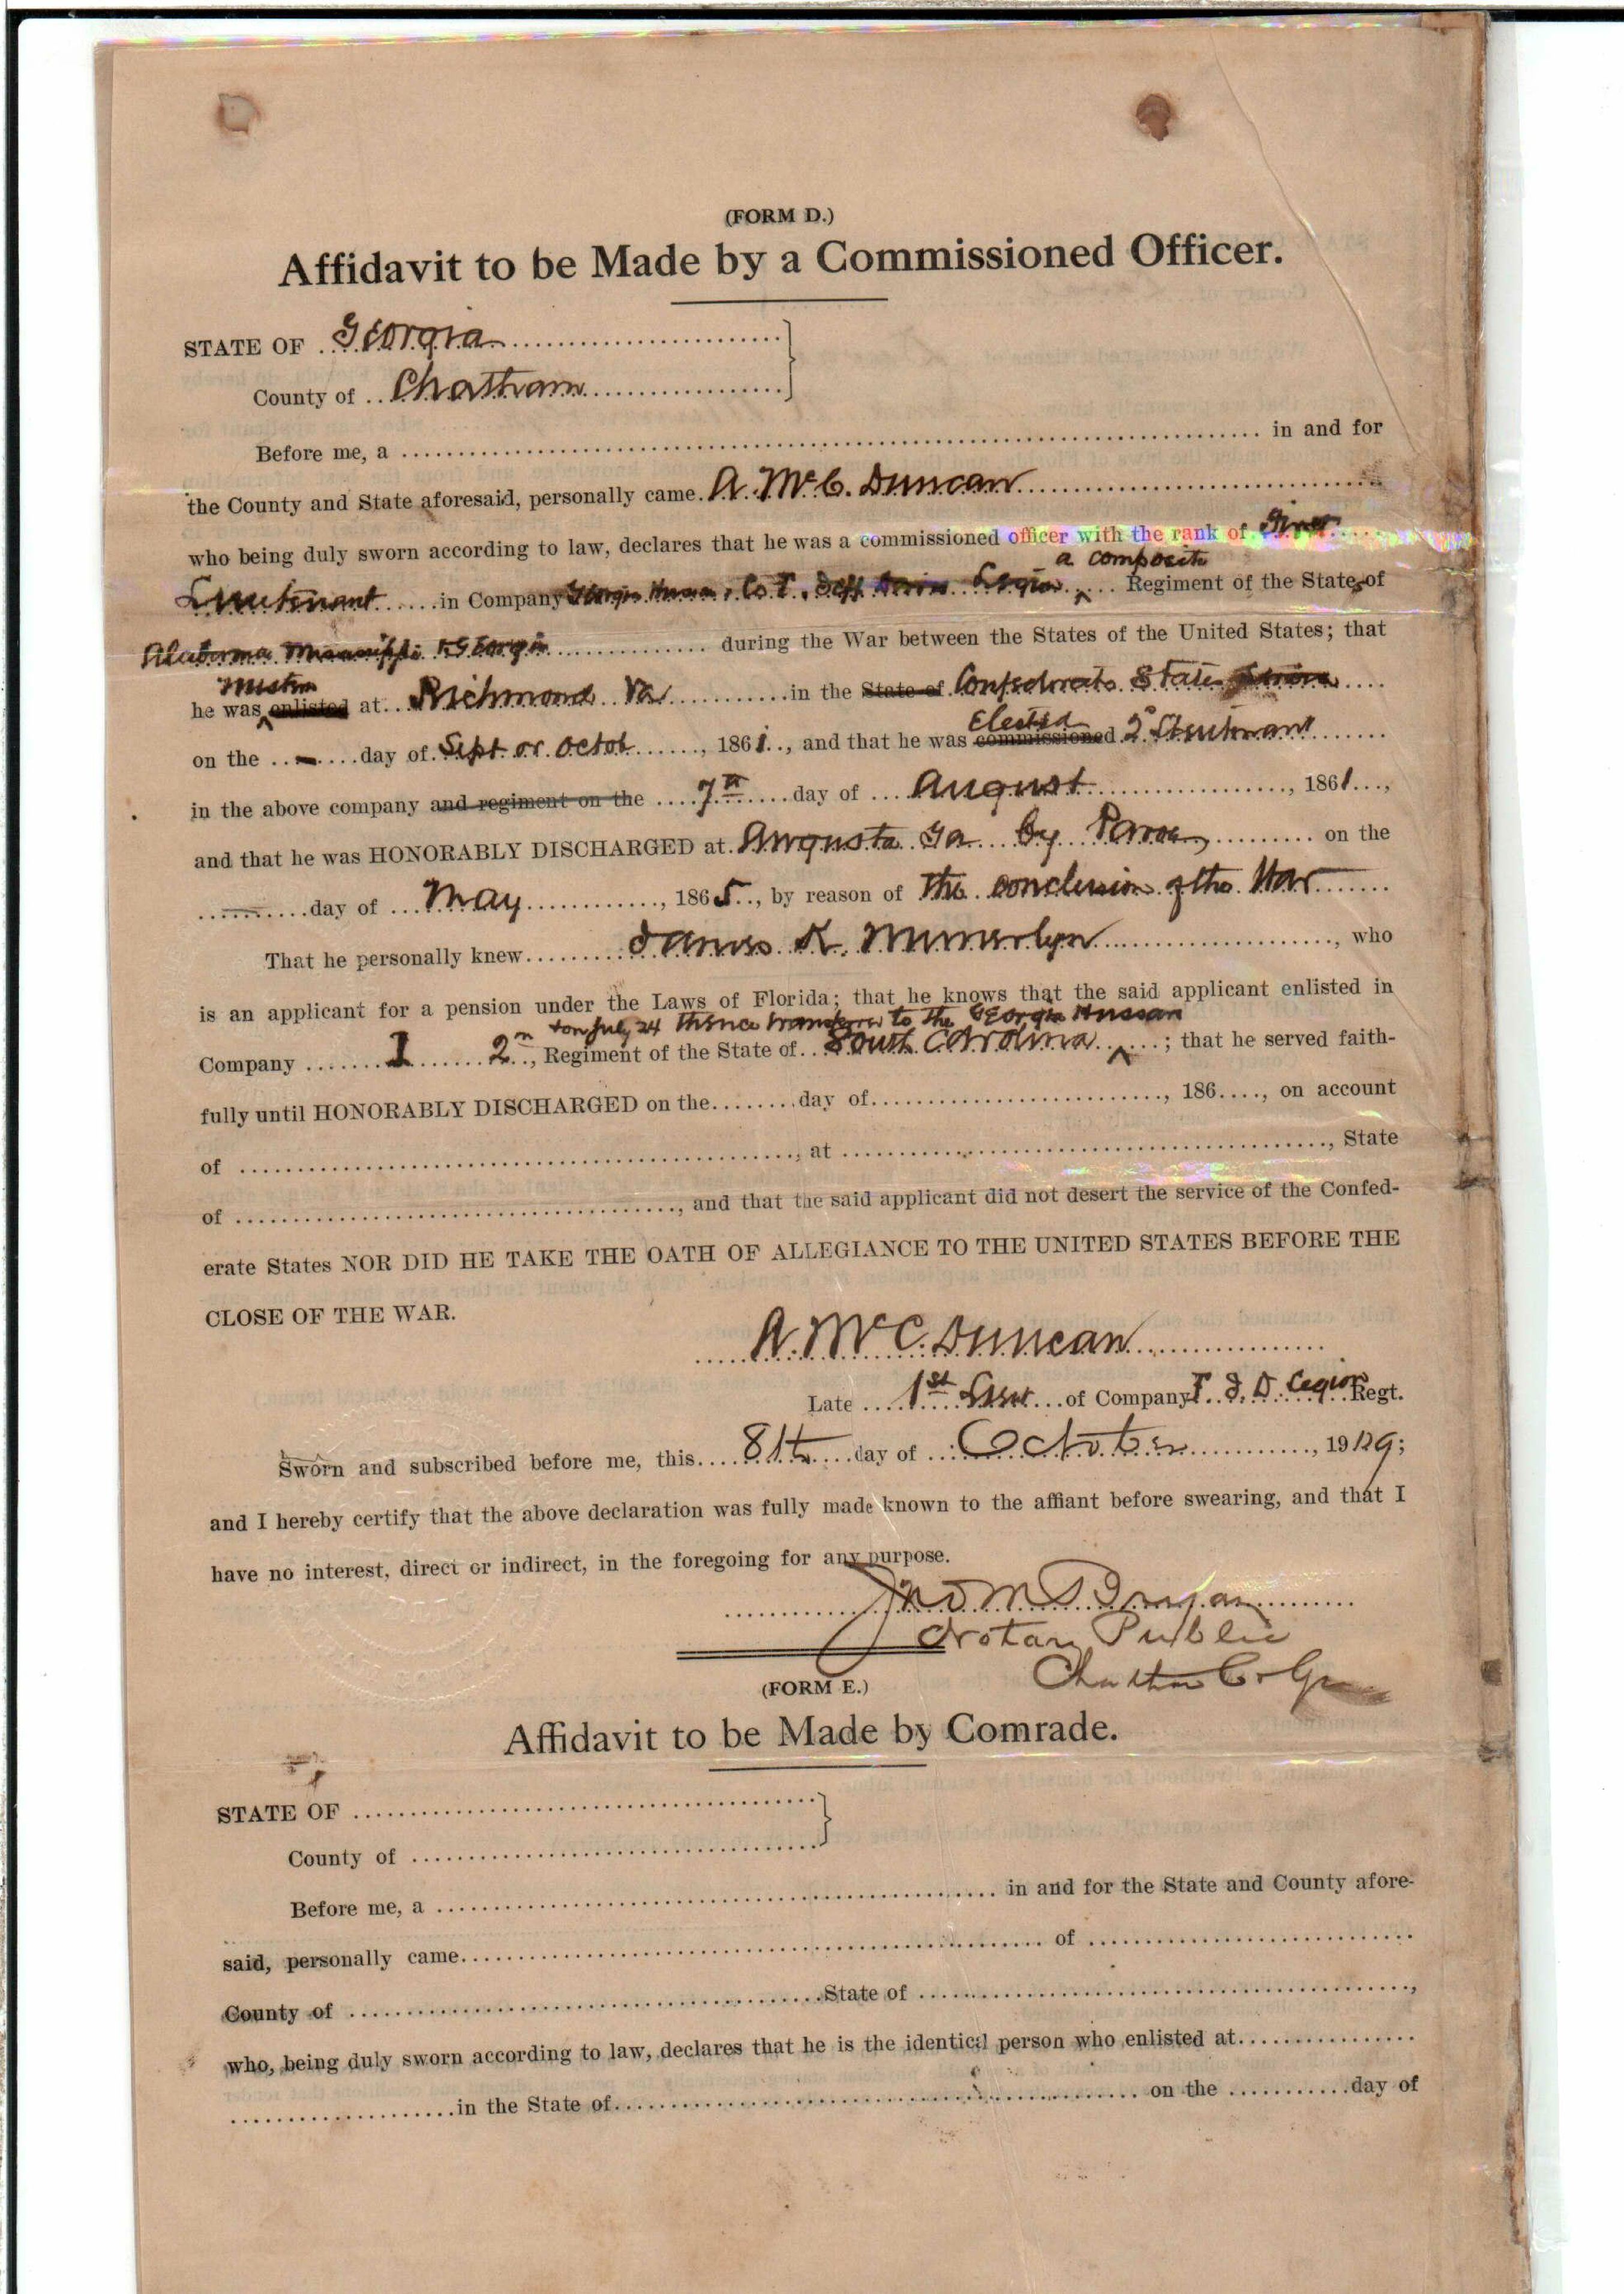 (FORM D.)
Affidavit to be Made by a Commissioned Officer.
STATE OF Georgia
County of Chatham
Before me, a in and for
the County and State aforesaid, personally came A. McC. Duncan
who being duly sworn according to law, declares that he was a commissioned officer with the rank of First
a composite
Lieutenant in Company Georgia Hussars, Co F, Jeff Davis Legion Regiment of the States of
Alabama Mississippi & Georgia during the War between the States of the United States; that
he was enlisted at Richmond Va in the State of Confederate States
Elected
on the - day of Sept or Octob, 1861, and that he was commissioned 2d Lieutenant
in the above company and regiment on the 7th day of August, 1861,
and that he was HONORABLY DISCHARGED at Augusta Ga by Parole, on the
day of May, 1865, by reason of The conclusion of the War
That he personally knew James K. Munnerlyn, who
is an applicant for a pension under the Laws of Florida; that he knows that the said applicant enlisted in
July 24 thence transferred to the Georgia Hussars
Company I 2n, Regiment of the State of South Carolina; that he served faith-
fully until HONORABLY DISCHARGED on the day of, 186, on account
of, at, State
of, and that the said applicant did not desert the service of the Confed-
erate States NOR DID HE TAKE THE OATH OF ALLEGIANCE TO THE UNITED STATES BEFORE THE
CLOSE OF THE WAR.
A. McC. Duncan
Late 1st Lieut of Company F J. D. Legion Regt.
Sworn and subscribed before me, this 8th day of October, 19;
and I hereby certify that the above declaration was fully made known to the affiant before swearing, and that I
have no interest, direct or indirect, in the foregoing for any purpose.
Notary Public
Chatham Co Ga
(FORM E.)
Affidavit to be Made by Comrade.
STATE OF
County of
Before me, a in and for the State and County afore-
said, personally came of
County of State of,
who, being duly sworn according to law, declares that he is the identical person who enlisted at
in the State of on the day of